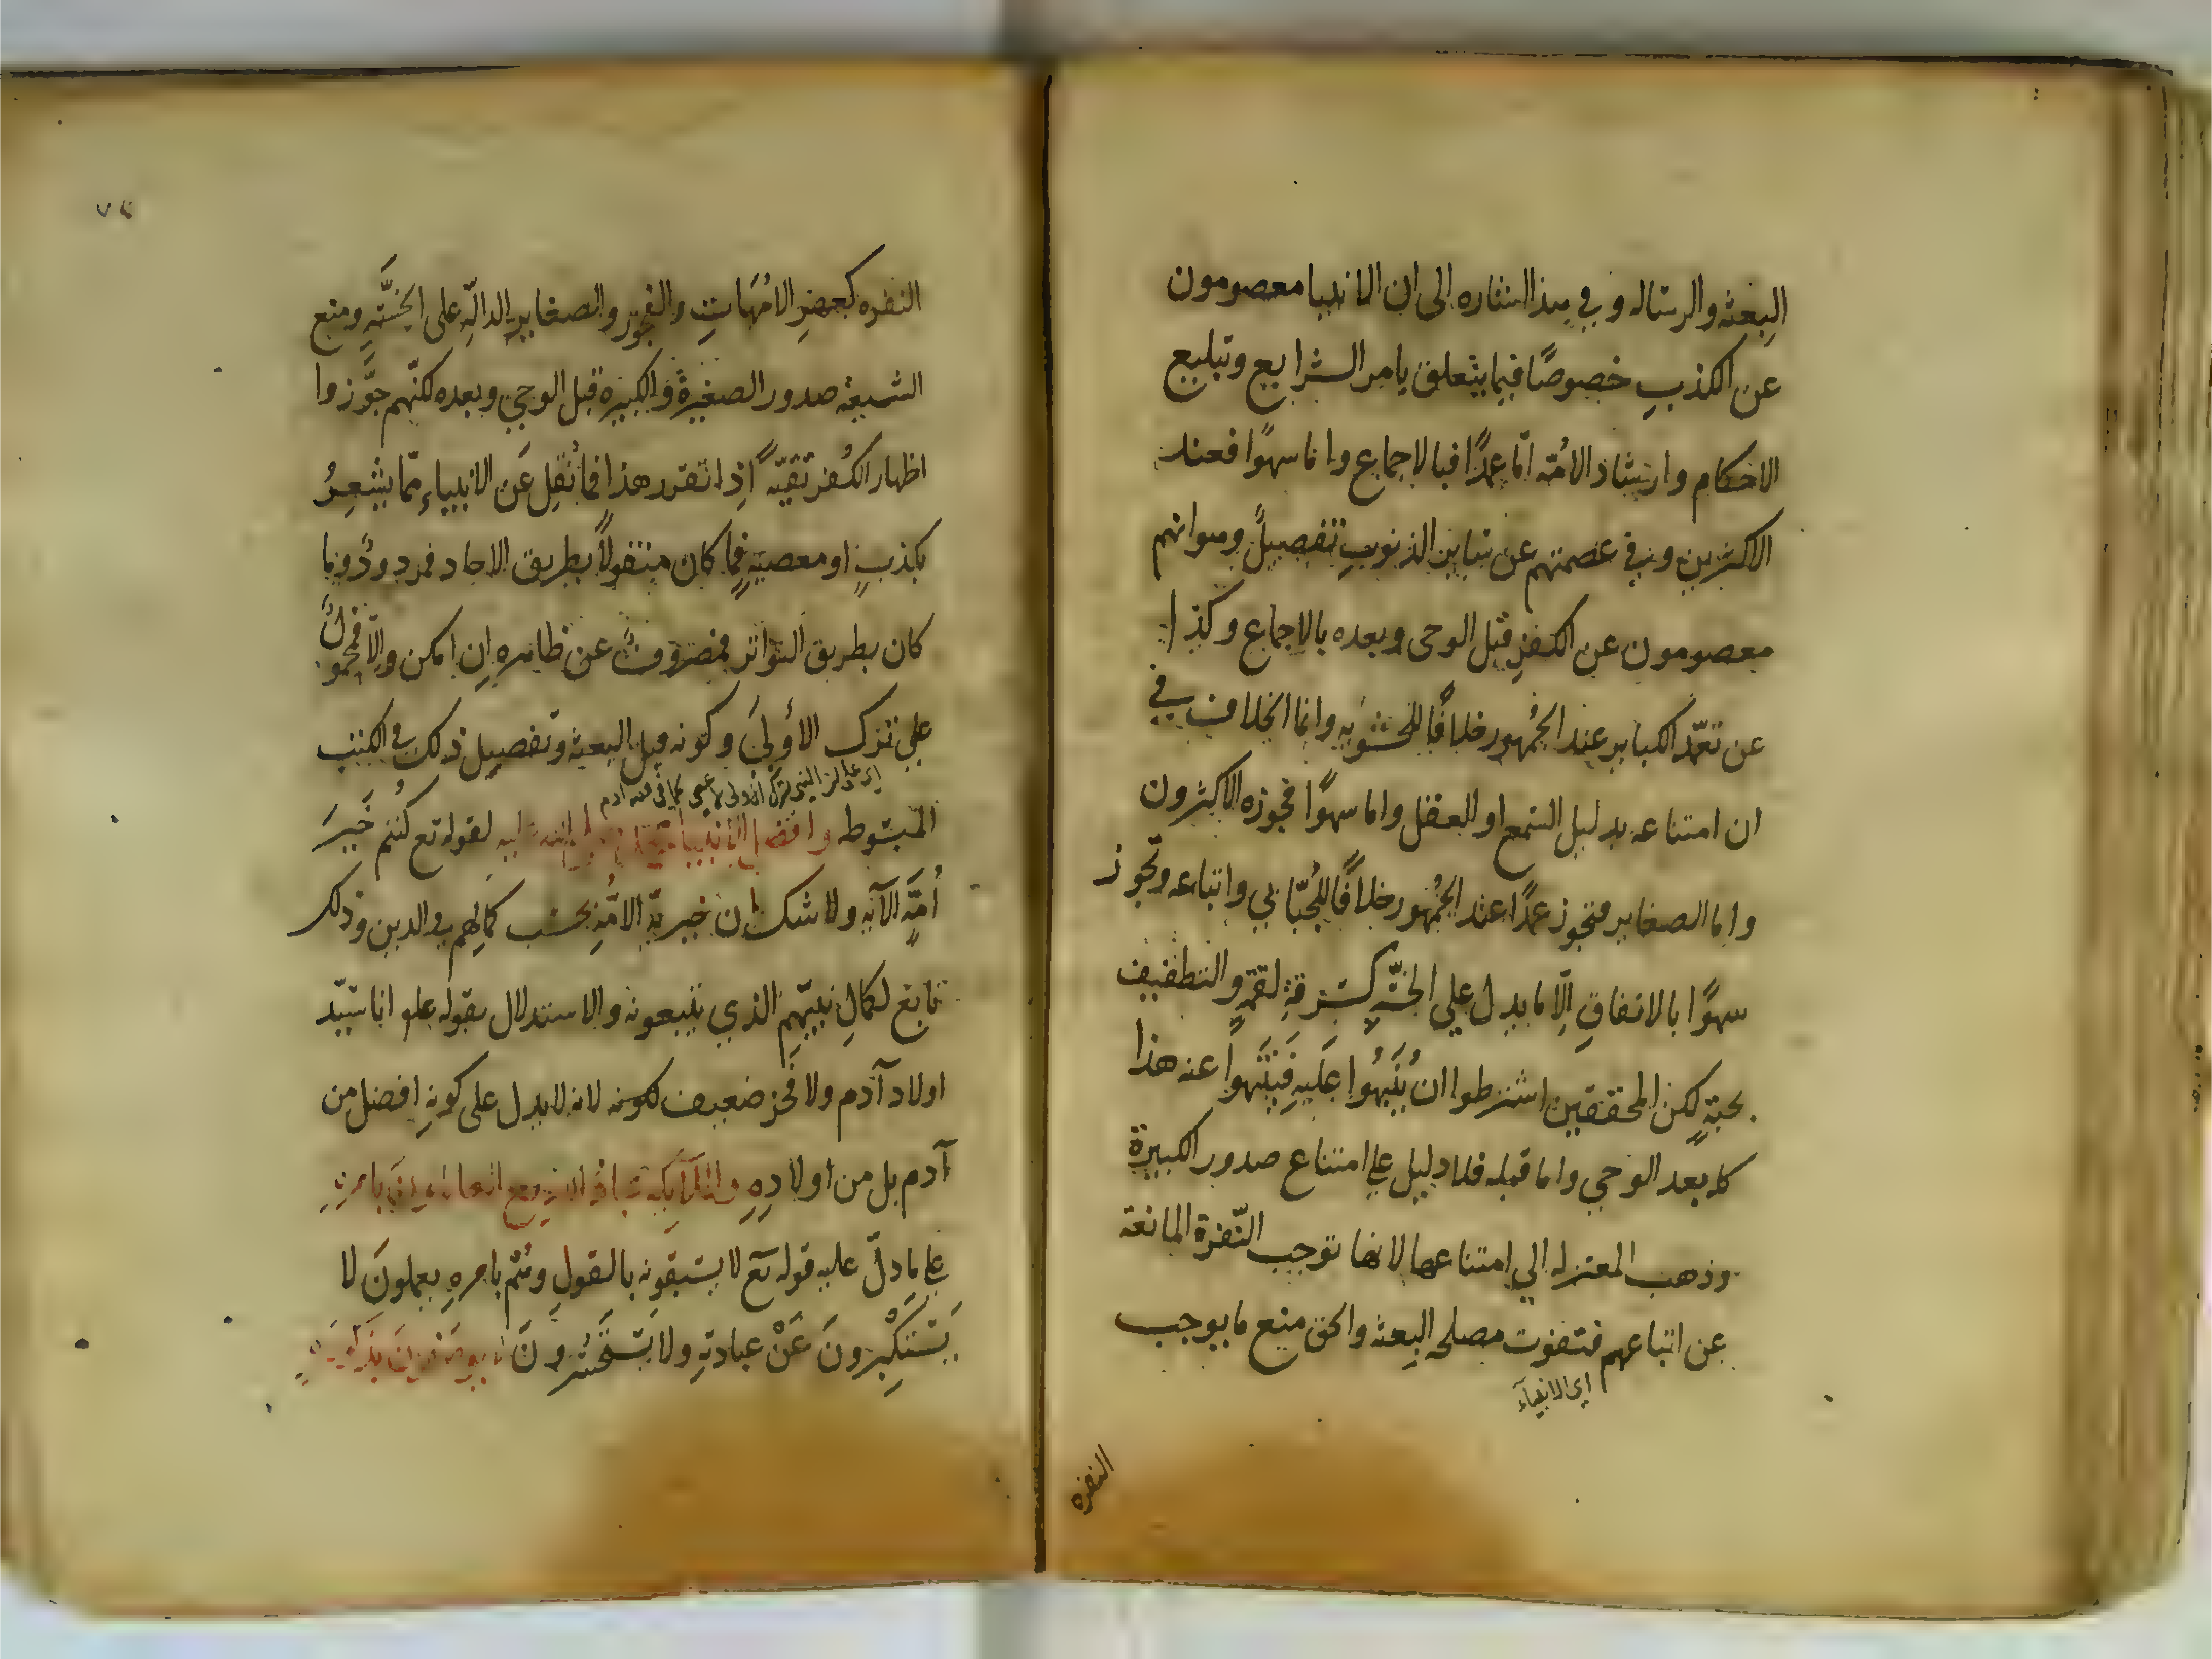 البعثه والرساله وفي هذا اشاره الى ان الانبيا معصومون
عن الكذبِ خصوصًا فيما يتعلق بامر الشرايع وتبليغ
الاحكام وارشاد الامّه امّا عمدًا فبالاجماع واما سهوًا فعند
الاكثرين وفي عصمتهم عن ساير الذنوبِ تفصيلٌ وهو انهم
معصومون عن الكفرِ قبل الوحى وبعده بالاجماع وكذا
عن تعمّد الكباير عند الجُمهور خلافًا للحشويه وانما الخلاف في
ان امتناعه بدليل السّمع او العقل واما سهوًا فجوزه الاكثرون
واما الصغاير فتجوز عمدًا عند الجُمهور خلافًا للجُبّائي واتباعه وتجوز
سهوًا بالاتفاقِ اِلّا ما يدل علي الخسّهِ كسَرقةِ لقمةٍ والتطفيف
بحبّةٍ لكن المحققين اشترطوا ان يُنَبّهُوا عَليهِ فَيَنتَهوا عنه هذا
كله بعد الوحي واما قبله فلا دليل علي امتناع صدور الكبيرة
وذهب المعتزله الي امتناعها لانها توجب النّفرة المانعة
عن اتباعهم فتفوت مصلحه البعثه والحق منع ما يوجب
اي الانبياء
النفره
٧٤
النفره كعهرِ الامّهاتِ والفجور والصغاير الدالّهِ على الخسَّهِ ومنع
الشيعة صدور الصغيرة والكبيرة قبل الوحي وبعده لكنّهم جوَّزوا
اظهار الكُفر تقيّةً اِذا تقرر هذا فما نُقِل عَن الانبياءِ ممّا يشعِرُ
بكذبٍ او معصيةٍ فما كان منقولًا بطريق الاحاد فمردودٌ وما
كان بطريق التواتر فمصروفٌ عن ظاهرهِ اِن امكن واِلّا فمحمولٌ
علي ترك الاَولَى وكونه قبل البعثه وتفصيل ذلك في الكتب
المبسُوطه وافضل الانبيا محمد عليه لقوله تع كُنتم خَيرَ
اُمّةٍ الآيه ولا شك ان خيريّة الامّةِ بحسَب كمالِهم في الدين وذلك
تابع لكمالِ نبيّهِم الذي يتبعونه والاستدلال بقوله علم انا سَيّد
اولاد آدم ولا فخر ضعيف لكونه لانه لا يدل على كونهِ افضل من
آدم بل من اولادِهِ والملايكة عباد الله تع العاملون بامرهِ
علي ما دلّ عليه قوله تعَ لا يسبقونه بالقولِ وهُم بامرهِ يعملونَ لا
يَستَكبِرونَ عَنْ عبادتهِ ولا يَستَحسِرونَ لا يوصَفونَ بذكورةٍ